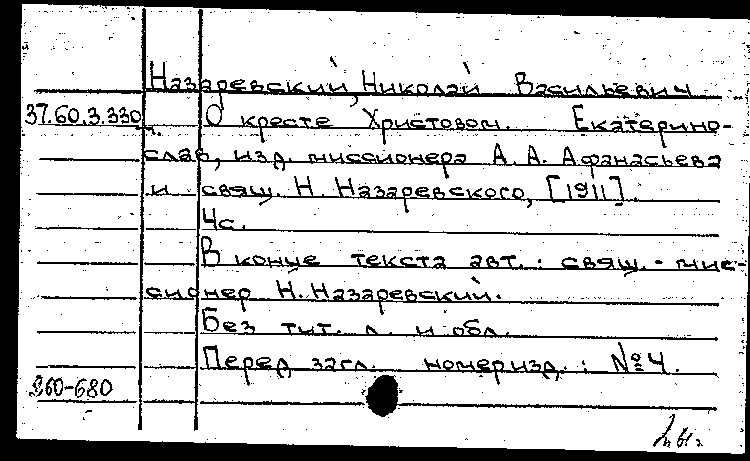 Назаревский, Николай Васильевич
37.60.3.330
О кресте Христовом. Екатерино-
слав, изд. миссионера А. А. Афанасьева
и свящ. Н. Назаревского, [1911].
4с.
В конце текста авт.: свящ.-мис-
сионер Н. Назаревский.
Без тит. л. и обл.
Перед загл. номер изд.: №4.
360-680